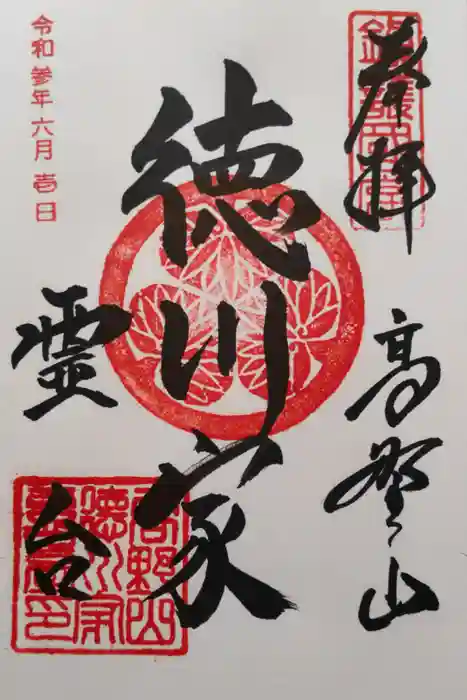 奉拝
高野山
徳川家
霊台
令和参年六月壱日
高野山
徳川家
霊台印